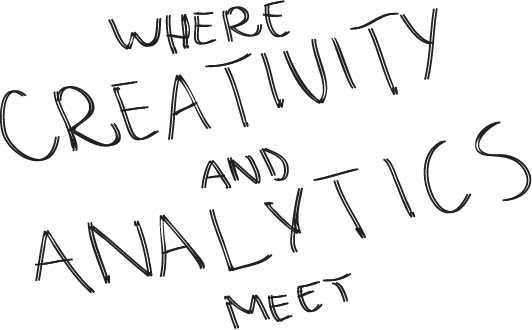 WHERE
CREATIVITY
AND
ANALYTICS
MEET